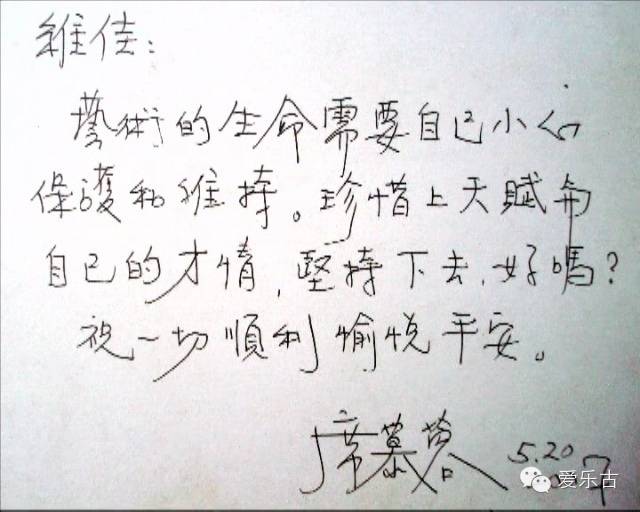 維佳：
藝術的生命需要自己小心
保護和維持。珍惜上天賦與
自己的才情，堅持下去，好嗎？
祝一切順利愉悅平安。
席慕蓉
5.20
爱乐古